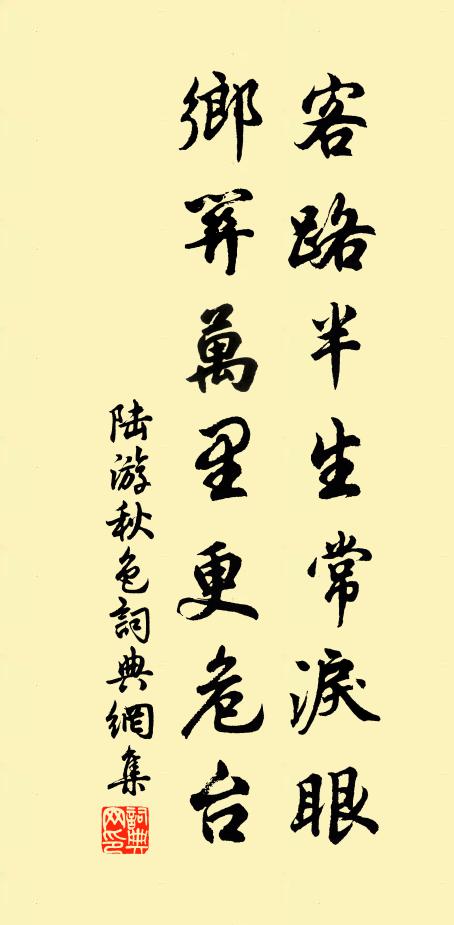 客路半生常淚眼
鄉關萬里更危台
陆游秋色詞典網集
詞典網印